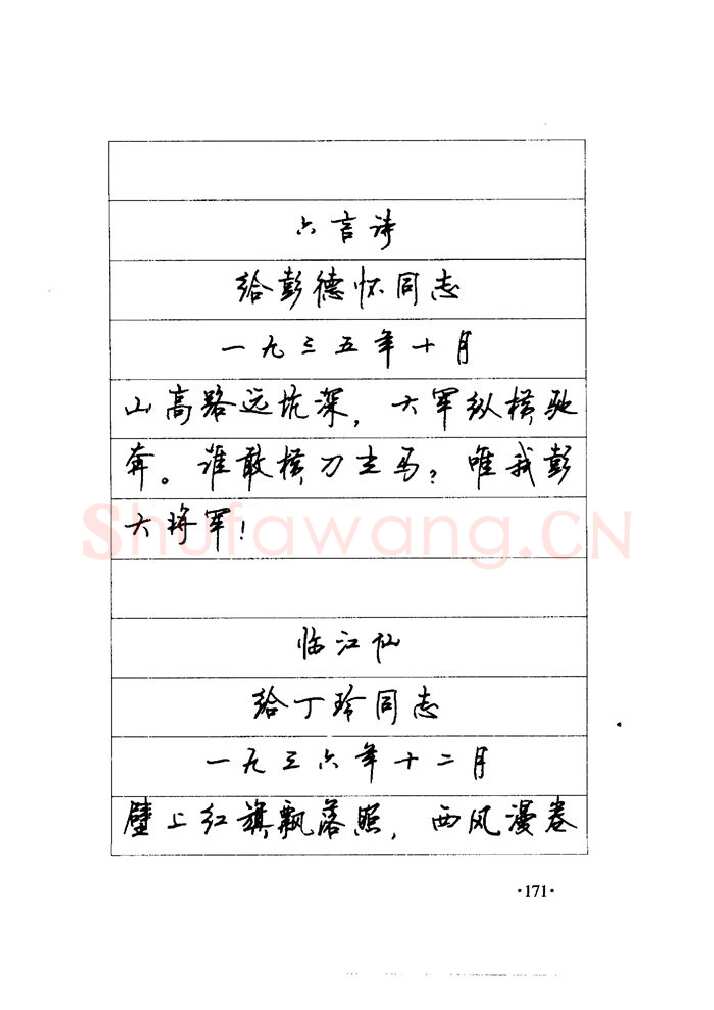 六言诗
给彭德怀同志
一九三五年十月
山高路远坑深，大军纵横驰
奔。谁敢横刀立马？唯我彭
大将军！
Shufawang.CN
临江仙
给丁玲同志
一九三六年十二月
壁上红旗飘落照，西风漫卷
·171·